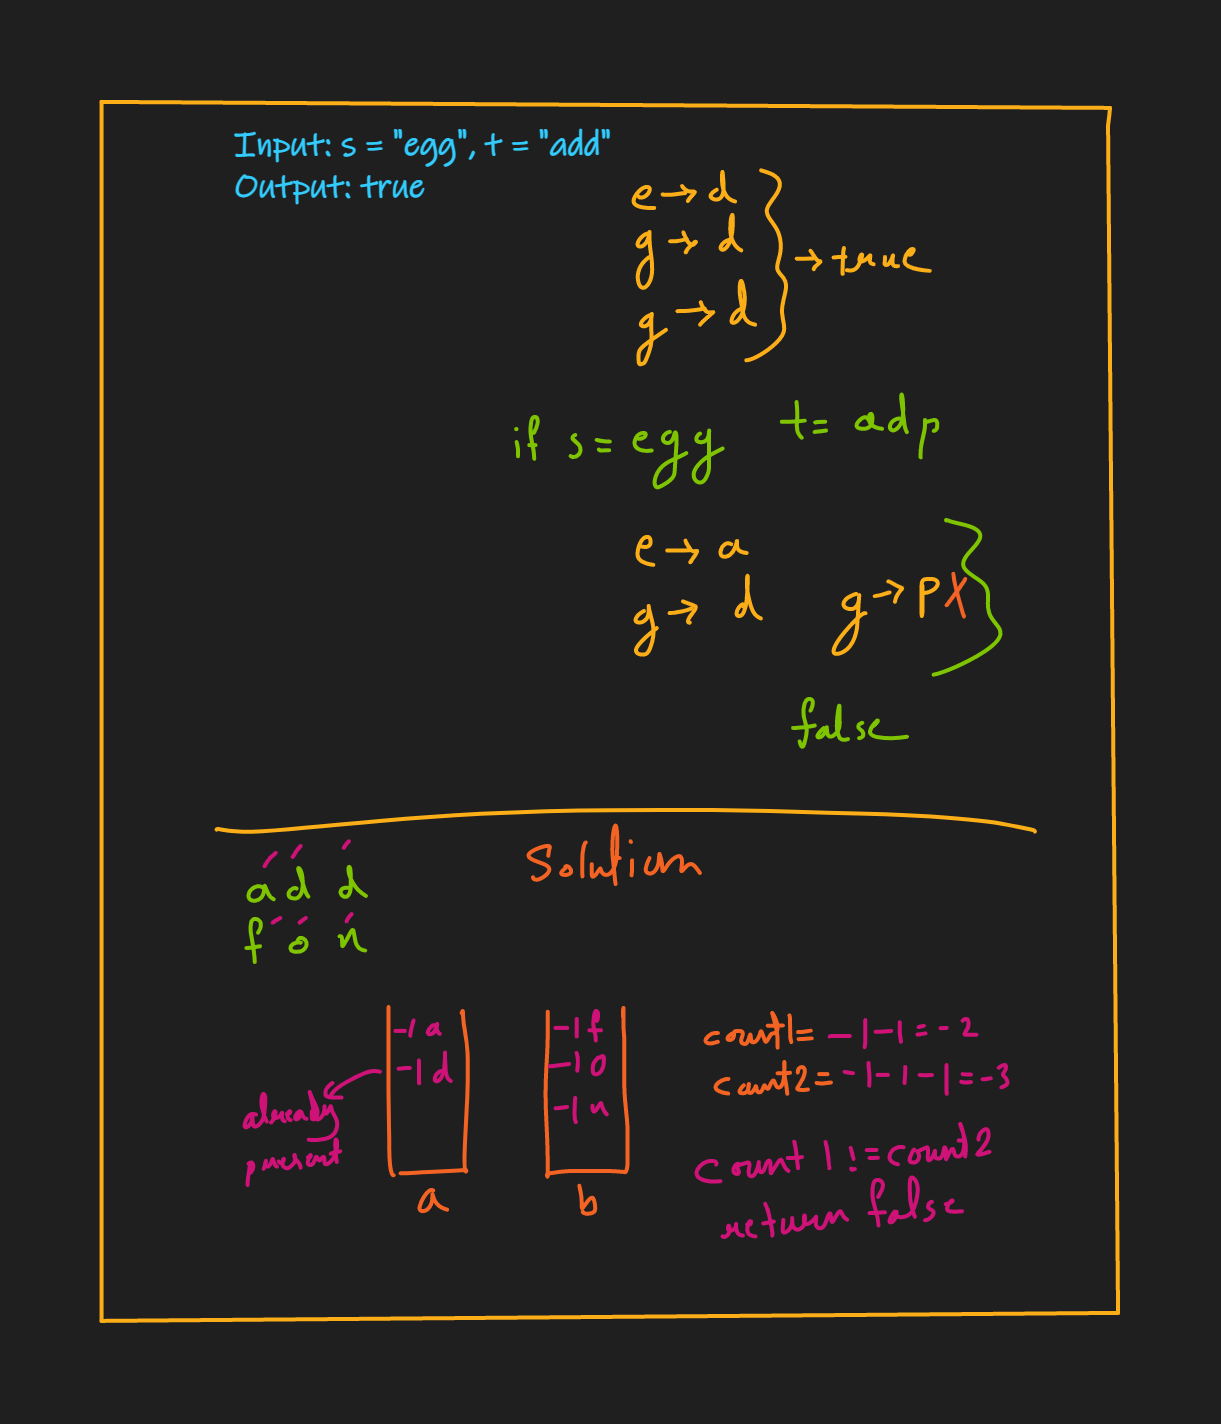 Input: s = "egg", t = "add"
Output: true
e → d
g → d
g → d
→ true
if s = egg t = adp
e → a
g → d g → p X
false
Solution
a d d
f o n
-1 a
-1 d
already
present
a
-1 f
-1 o
-1 n
b
count1= -1-1=-2
count2= -1-1-1=-3
count 1 != count2
return false